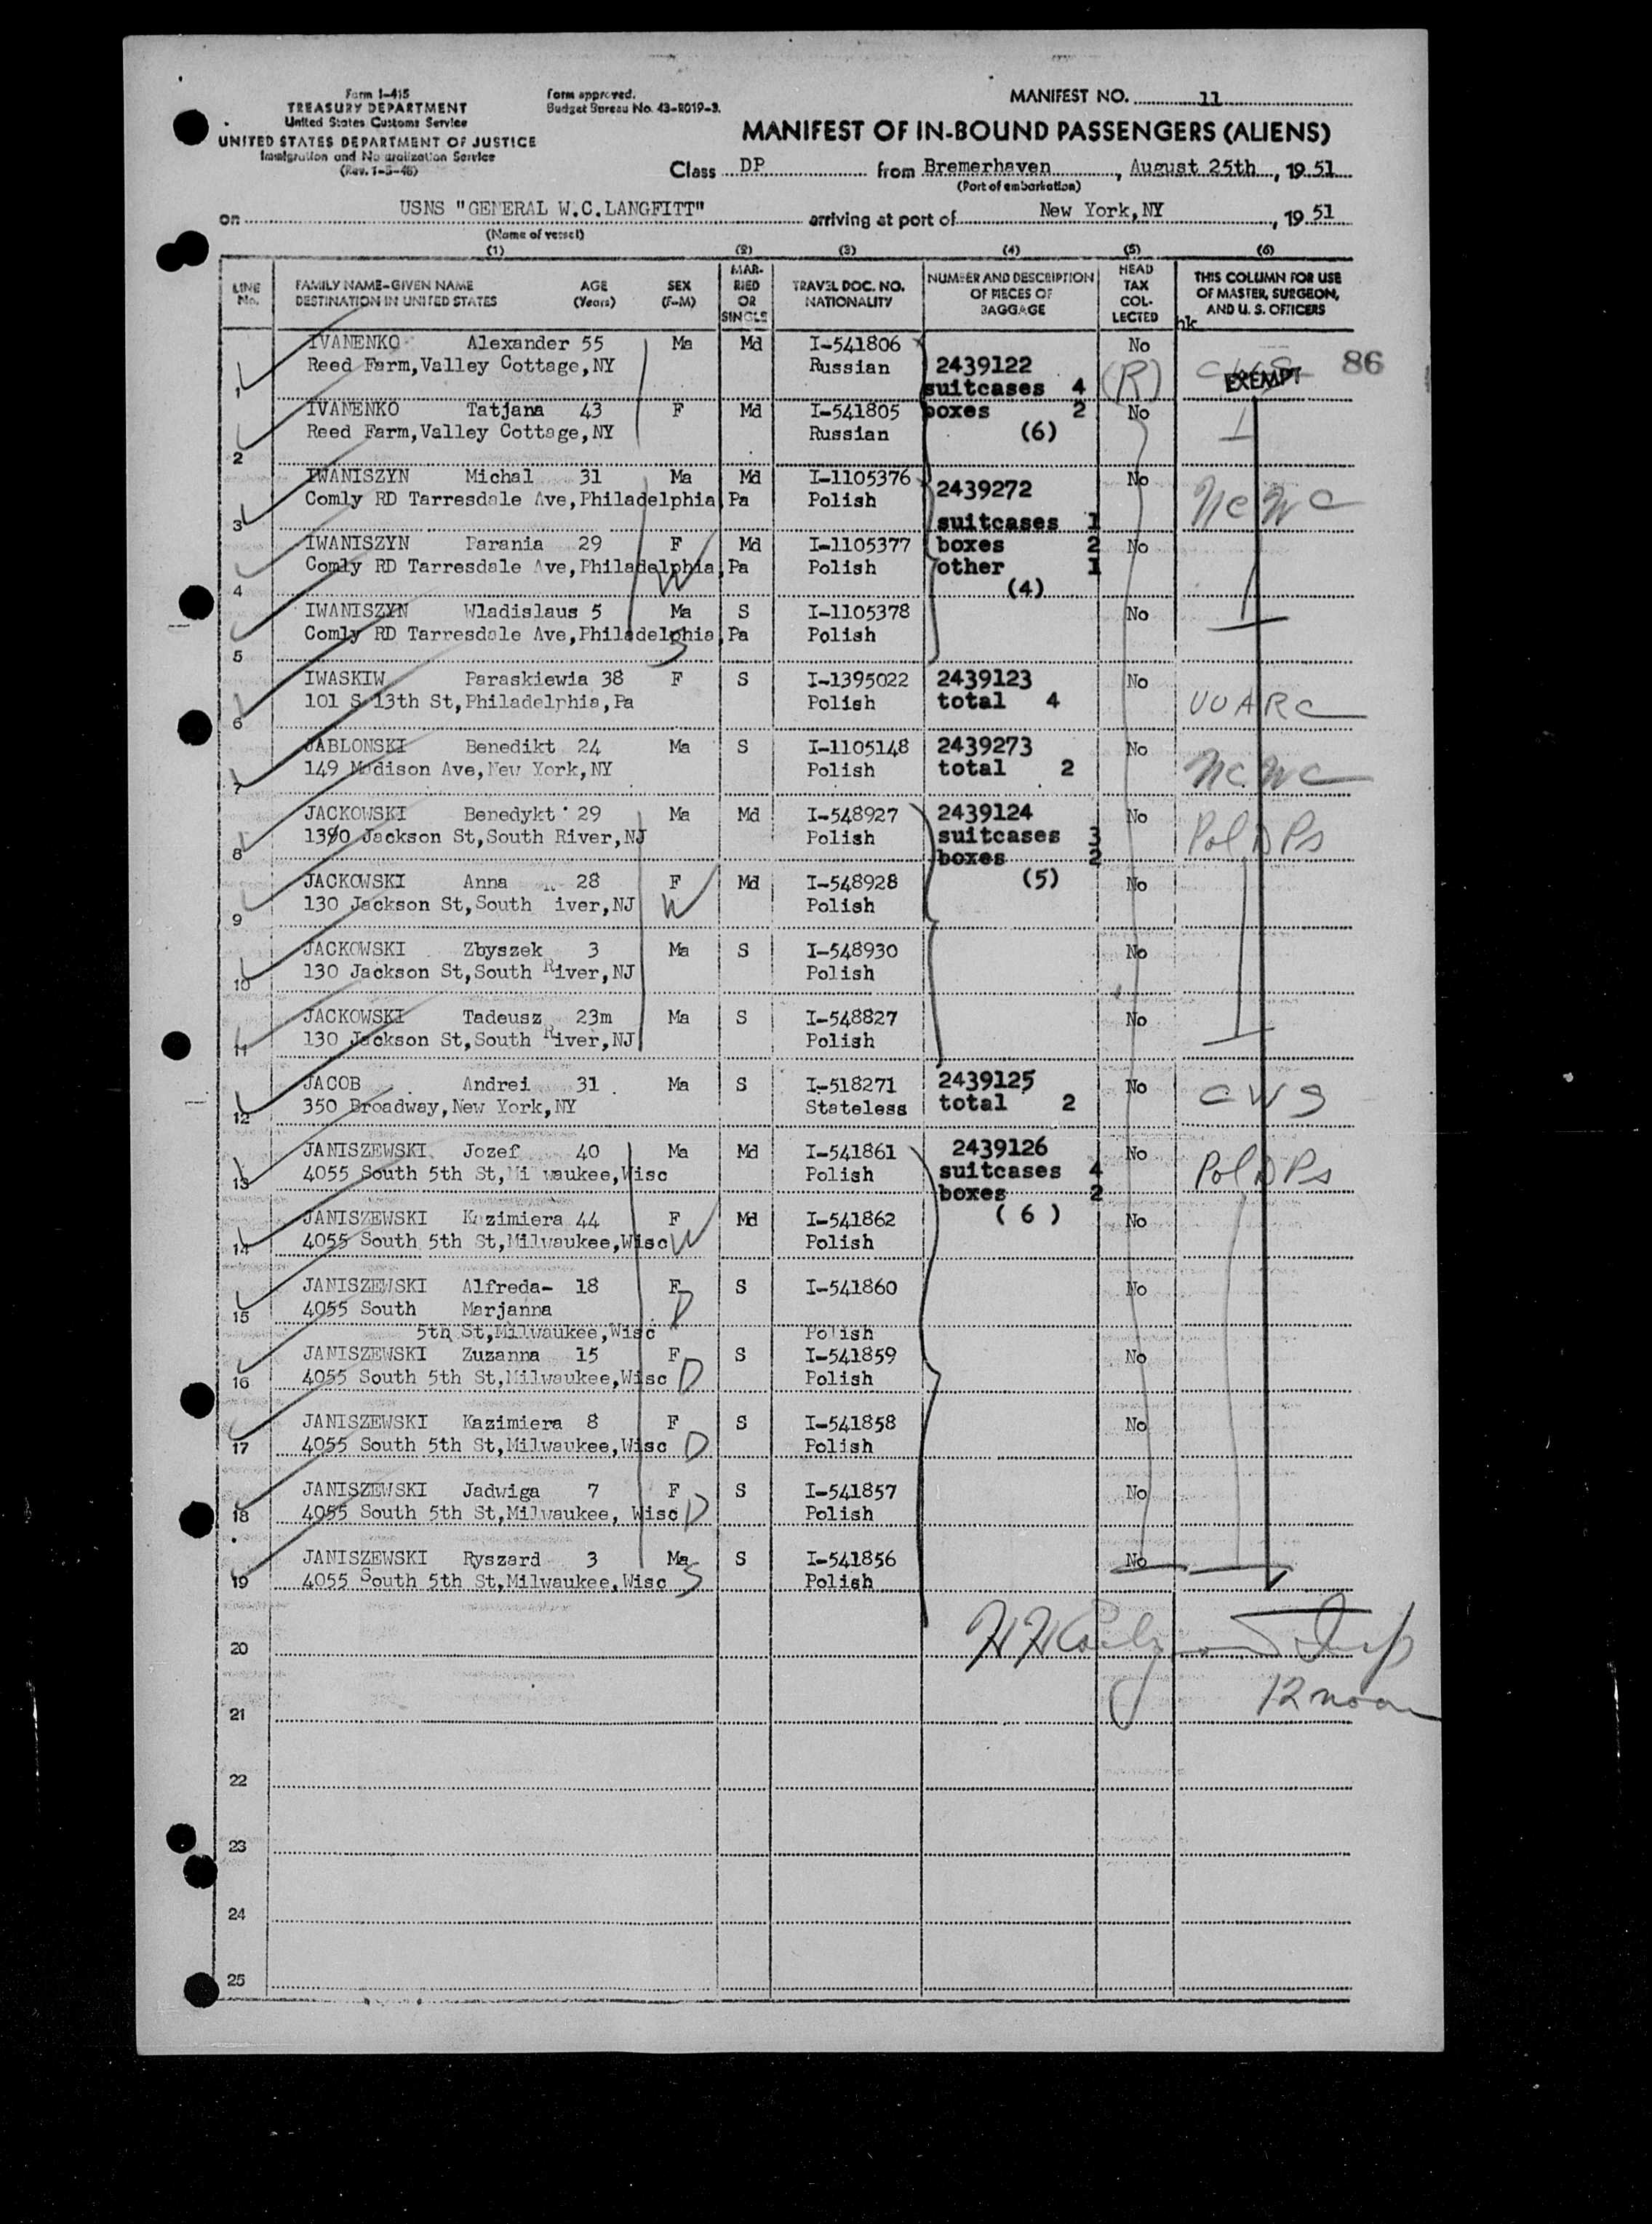 Form I-415
TREASURY DEPARTMENT
United States Customs Service
UNITED STATES DEPARTMENT OF JUSTICE
Immigration and Naturalization Service
(Rev. 1-5-48)
Form approved.
Budget Bureau No. 43-R019-3.
MANIFEST NO. 11
MANIFEST OF IN-BOUND PASSENGERS (ALIENS)
Class DP from Bremerhaven, August 25th, 1951
(Port of embarkation)
on USNS "GENERAL W.C.LANGFITT" arriving at port of New York,NY, 1951
(Name of vessel)
(1) (2) (3) (4) (5) (6)
LINE No. FAMILY NAME-GIVEN NAME DESTINATION IN UNITED STATES AGE (Years) SEX (F-M) MARRIED OR SINGLE TRAVEL DOC. NO. NATIONALITY NUMBER AND DESCRIPTION OF PIECES OF BAGGAGE HEAD TAX COLLECTED THIS COLUMN FOR USE OF MASTER, SURGEON, AND U. S. OFFICERS
hk
IVANENKO Alexander 55 Ma Md I-541806 No
1 Reed Farm,Valley Cottage,NY Russian 2439122 (R) EXEMPT 86
suitcases 4
IVANENKO Tatjana 43 F Md I-541805 boxes 2 No
2 Reed Farm,Valley Cottage,NY Russian (6)
IWANISZYN Michal 31 Ma Md I-1105376 No
3 Comly RD Tarresdale Ave,Philadelphia,Pa Polish 2439272 NCWC
suitcases 1
IWANISZYN Parania 29 F Md I-1105377 boxes 2 No
4 Comly RD Tarresdale Ave,Philadelphia,Pa W Polish other 1
(4)
IWANISZYN Wladislaus 5 Ma S I-1105378 No
5 Comly RD Tarresdale Ave,Philadelphia,Pa S Polish
IWASKIW Paraskiewia 38 F S I-1395022 2439123 No
6 101 S 13th St,Philadelphia,Pa Polish total 4 UUARC
JABLONSKI Benedikt 24 Ma S I-1105148 2439273 No
7 149 Madison Ave,New York,NY Polish total 2 NCWC
JACKOWSKI Benedykt 29 Ma Md I-548927 2439124 No
8 1390 Jackson St,South River,NJ Polish suitcases 3 Pol DPs
boxes 2
JACKOWSKI Anna 28 F Md I-548928 (5) No
9 130 Jackson St,South River,NJ W Polish
JACKOWSKI Zbyszek 3 Ma S I-548930 No
10 130 Jackson St,South River,NJ Polish
JACKOWSKI Tadeusz 23m Ma S I-548827 No
11 130 Jackson St,South River,NJ Polish
JACOB Andrei 31 Ma S I-518271 2439125 No
12 350 Broadway,New York,NY Stateless total 2 CWS
JANISZEWSKI Jozef 40 Ma Md I-541861 2439126 No
13 4055 South 5th St,Milwaukee,Wisc Polish suitcases 4 Pol DPs
boxes 2
JANISZEWSKI Kazimiera 44 F Md I-541862 ( 6 ) No
14 4055 South 5th St,Milwaukee,Wisc W Polish
JANISZEWSKI Alfreda- 18 F S I-541860 No
15 4055 South Marjanna D
5th St,Milwaukee,Wisc Polish
JANISZEWSKI Zuzanna 15 F S I-541859 No
16 4055 South 5th St,Milwaukee,Wisc D Polish
JANISZEWSKI Kazimiera 8 F S I-541858 No
17 4055 South 5th St,Milwaukee,Wisc D Polish
JANISZEWSKI Jadwiga 7 F S I-541857 No
18 4055 South 5th St,Milwaukee, Wisc D Polish
JANISZEWSKI Ryszard 3 Ma S I-541856 No
19 4055 South 5th St,Milwaukee,Wisc S Polish
20
21 12 noon
22
23
24
25